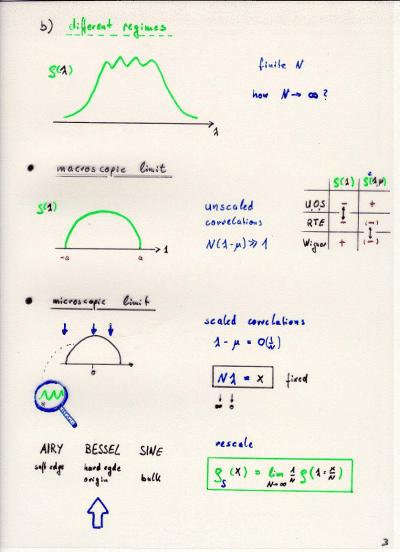 b) different regimes
ρ(λ)
finite N
how N → ∞ ?
λ
• macroscopic limit
ρ(λ)
-a a λ
unscaled
correlations
N(λ-μ) ≫ 1
ρ(λ) ρᶜ(λ,μ)
U.O.S - +
RTE - (-)
Wigner + (-)
• microscopic limit
0
scaled correlations
λ - μ = O(1/N)
Nλ = x fixed
∞ 0
AIRY BESSEL SINE
soft edge hard egde bulk
origin
rescale
ρ_s(x) = lim_{N→∞} 1/N ρ(λ = x/N)
3